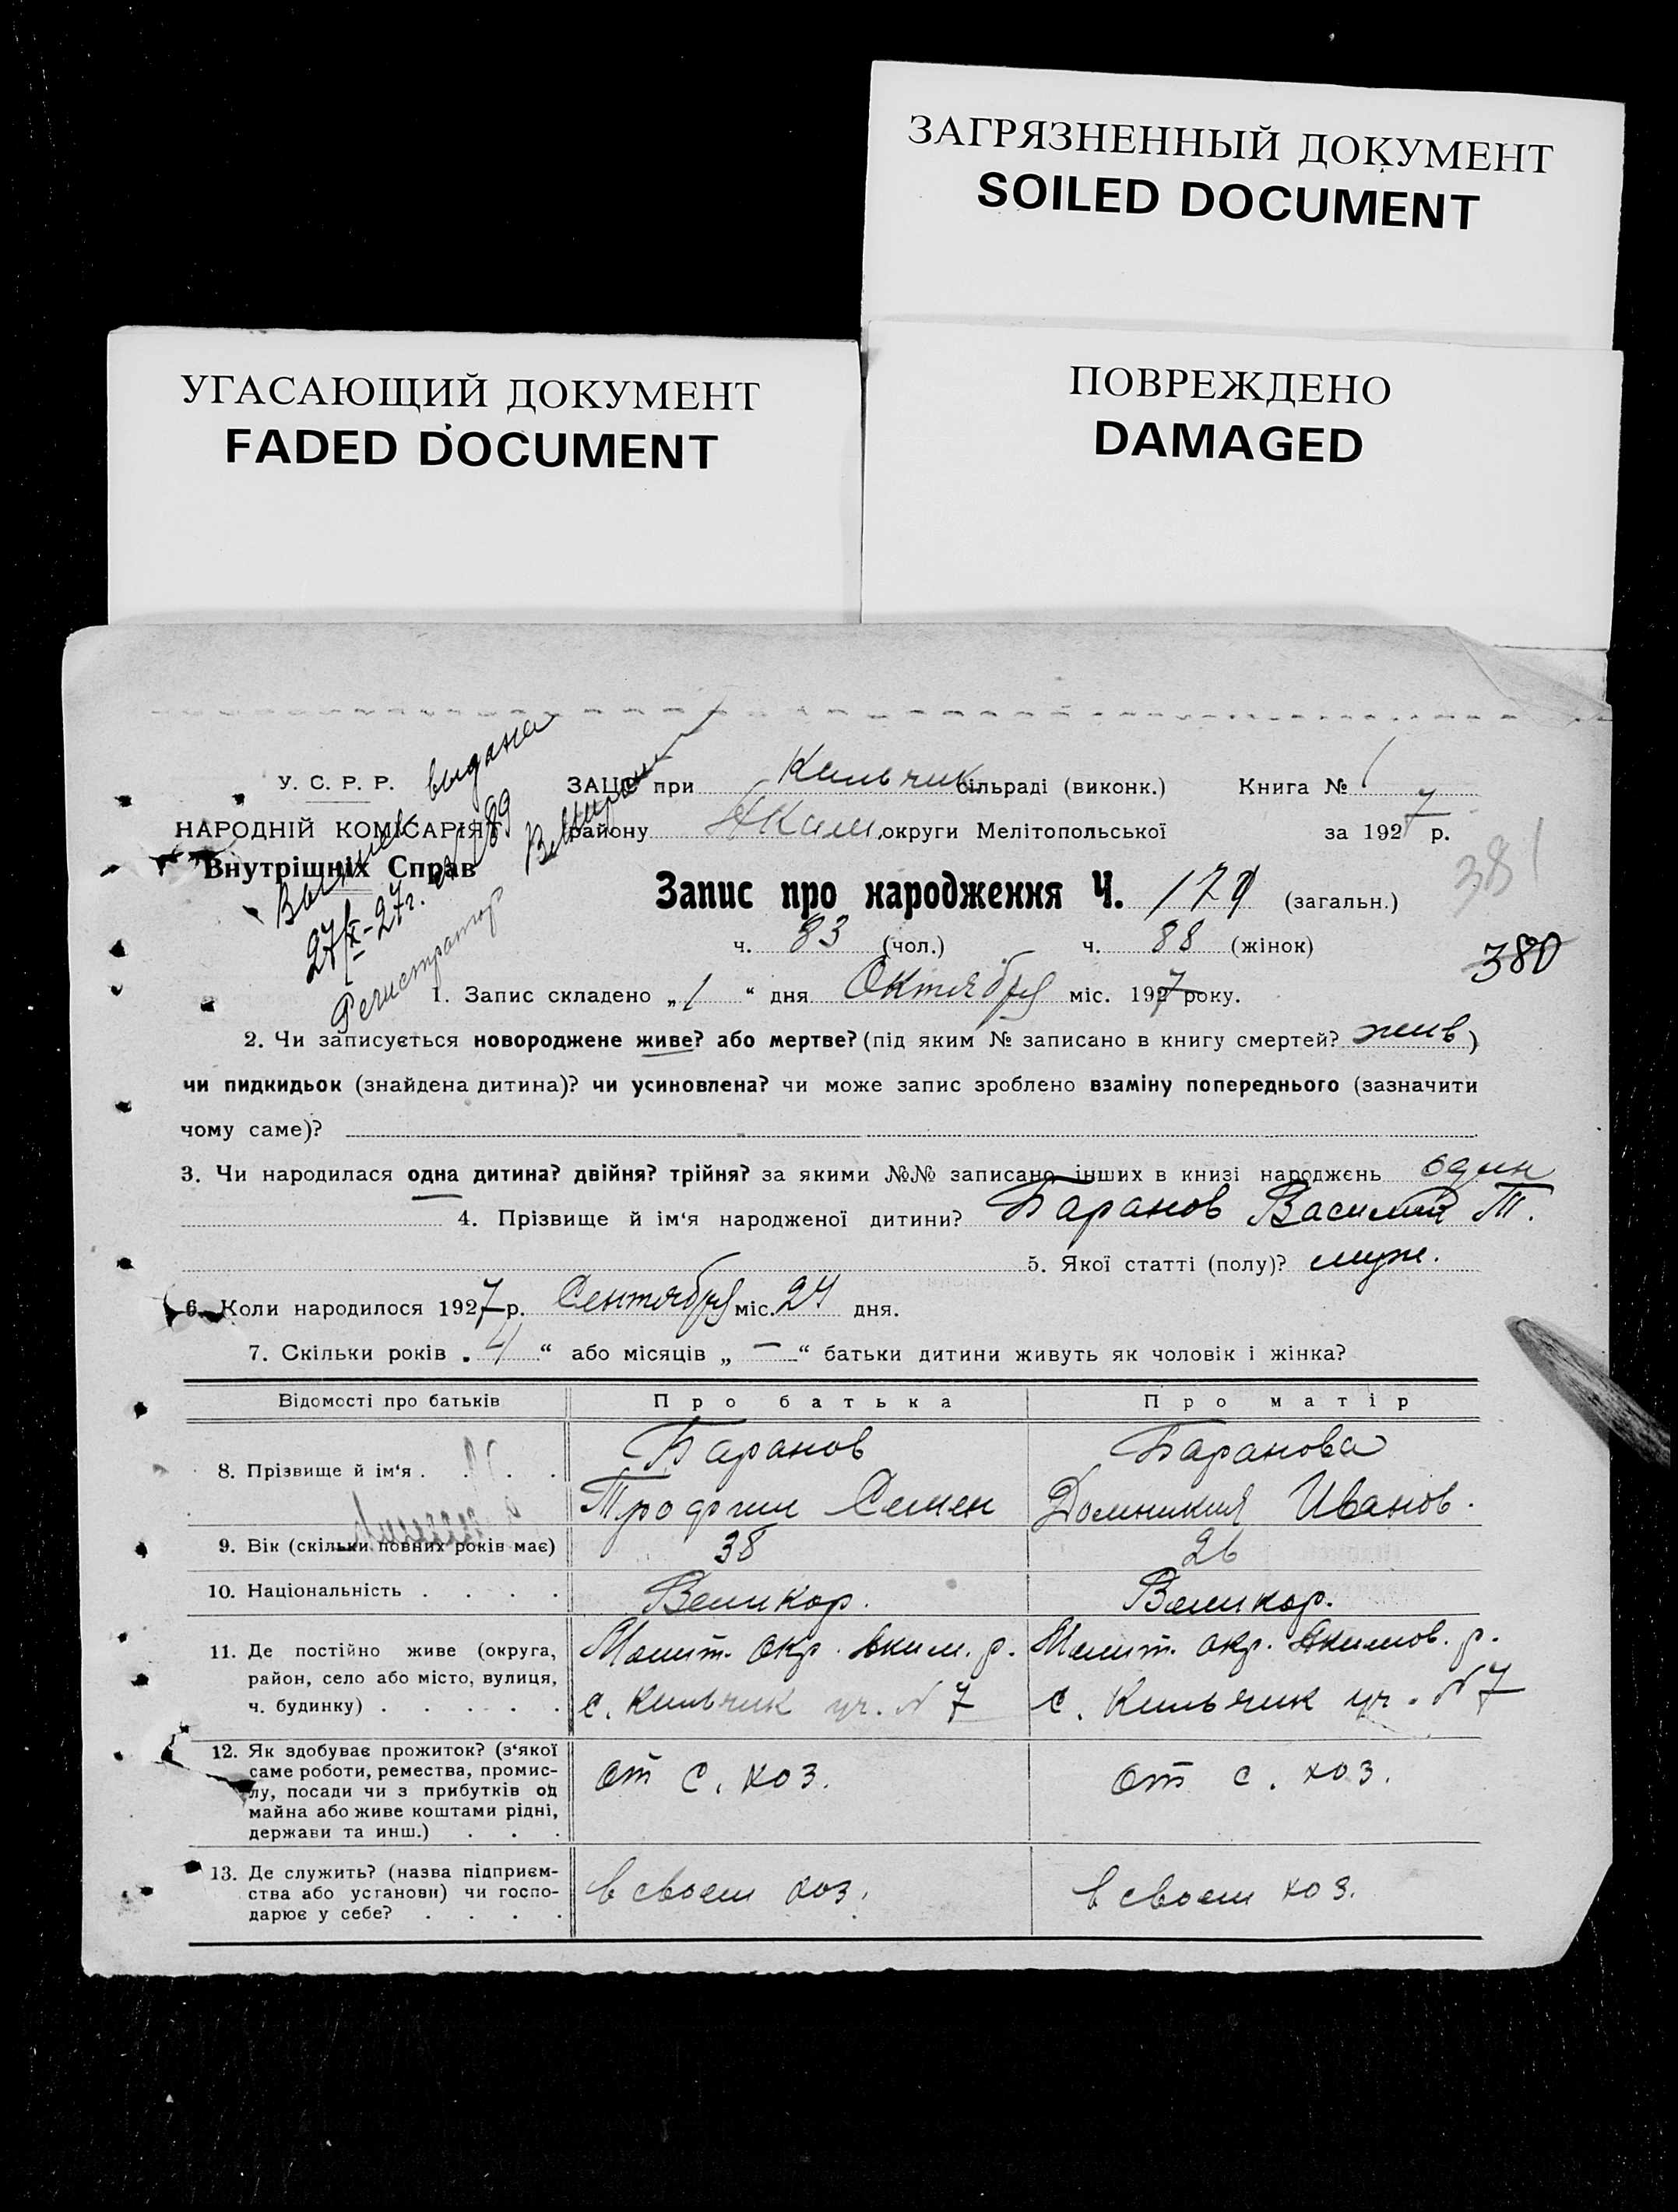 ЗАГРЯЗНЕННЫЙ ДОКУМЕНТ
SOILED DOCUMENT
УГАСАЮЩИЙ ДОКУМЕНТ
FADED DOCUMENT
ПОВРЕЖДЕНО
DAMAGED
У. С. Р. Р.
НАРОДНІЙ КОМІСАРІЯТ
Внутрішніх Справ
выдана
27/X-27г. 189
Регистратор
ЗАЦС при Кильчик сільраді (виконк.) Книга № 1
району Аким. округи Мелітопольської за 1927 р.
Запис про народження Ч. 179 (загальн.)
381
ч. 83 (чол.) ч. 88 (жінок)
380
1. Запис складено „1“ дня Октября міс. 1927 року.
2. Чи записується новороджене живе? або мертве? (під яким № записано в книгу смертей? жив)
чи пидкидьок (знайдена дитина)? чи усиновлена? чи може запис зроблено взаміну попереднього (зазначити
чому саме)?
3. Чи народилася одна дитина? двійня? трійня? за якими №№ записано інших в книзі народжєнь один
4. Прізвище й ім'я народженої дитини? Баранов Василий Т.
5. Якої статті (полу)? муж.
6. Коли народилося 1927 р. Сентября міс. 24 дня.
7. Скільки років „4“ або місяців „—“ батьки дитини живуть як чоловік і жінка?
Відомості про батьків Про батька Про матір
8. Прізвище й ім'я . . . . Баранов Баранова
Трофим Семен Домникия Иванов.
9. Вік (скільки повних років має) 38 26
10. Національність . . . . Великор. Великор.
11. Де постійно живе (округа, Мелит. окр. Аким. р. Мелит. окр. Акимов. р.
район, село або місто, вулиця,
ч. будинку) . . . . . с. Кильчик уч. № 7 с. Кильчик уч. № 7
12. Як здобуває прожиток? (з'якої
саме роботи, ремества, промис- от с. хоз. от с. хоз.
лу, посади чи з прибутків од
майна або живе коштами рідні,
держави та инш.) . . .
13. Де служить? (назва підприєм-
ства або установи) чи госпо- в своем хоз. в своем хоз.
дарює у себе? . . . .